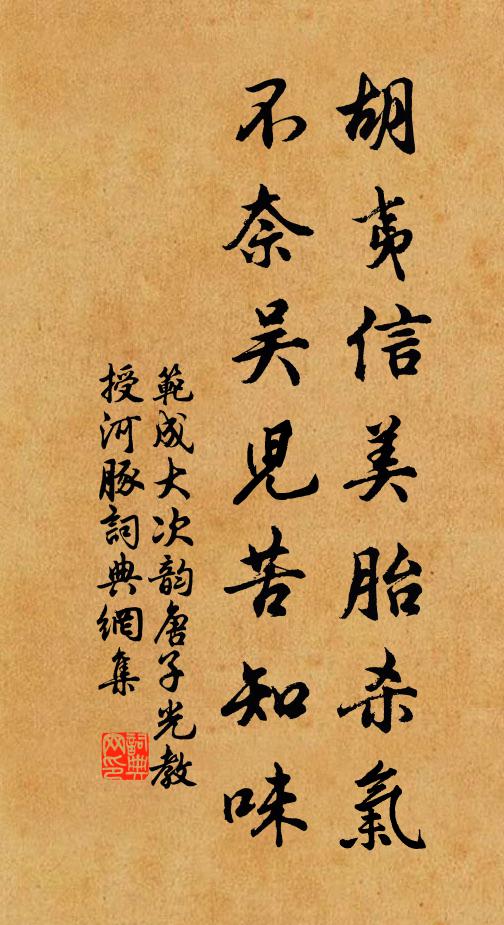 胡夷信美胎杀氣
不奈吴兒苦知味
範成大次韵唐子光教
授河豚詞典網集
詞典网印